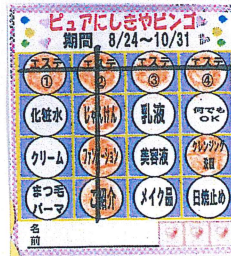 ピュアにしきやビンゴ
期間 8/24～10/31
エステ① エステ② エステ③ エステ④
化粧水 じゃんけん 乳液 何でもOK
クリーム ファンデーション 美容液 クレンジング
まつ毛パーマ ご紹介 メイク品 日焼止め
名前